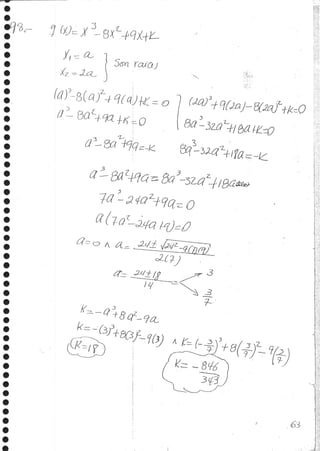 98.- q(x)= x³-8x²+9x+k
x₁ = a
x₂ = 2a } Son raíces
(a)³-8(a)²+9(a)+k=0
(2a)³+9(2a)-8(2a)²+k=0
a³-8a²+9a+k=0
8a³-32a²+18a+k=0
a³-8a²+9a=-k
8a³-32a²+18a=-k
a³-8a²+9a=8a³-32a²+18a
7a³-24a²+9a=0
a(7a²-24a+9)=0
a=0 ∧ a= 24±√24²-4(7)(9) / 2(7)
a= 24±18 / 14
3
3/7
k=-a³+8a²-9a
k=-(3)³+8(3)²-9(3) ∧ k=(-3/7)³+8(3/7)²-9(3/7)
k=18
k= -846/343
63